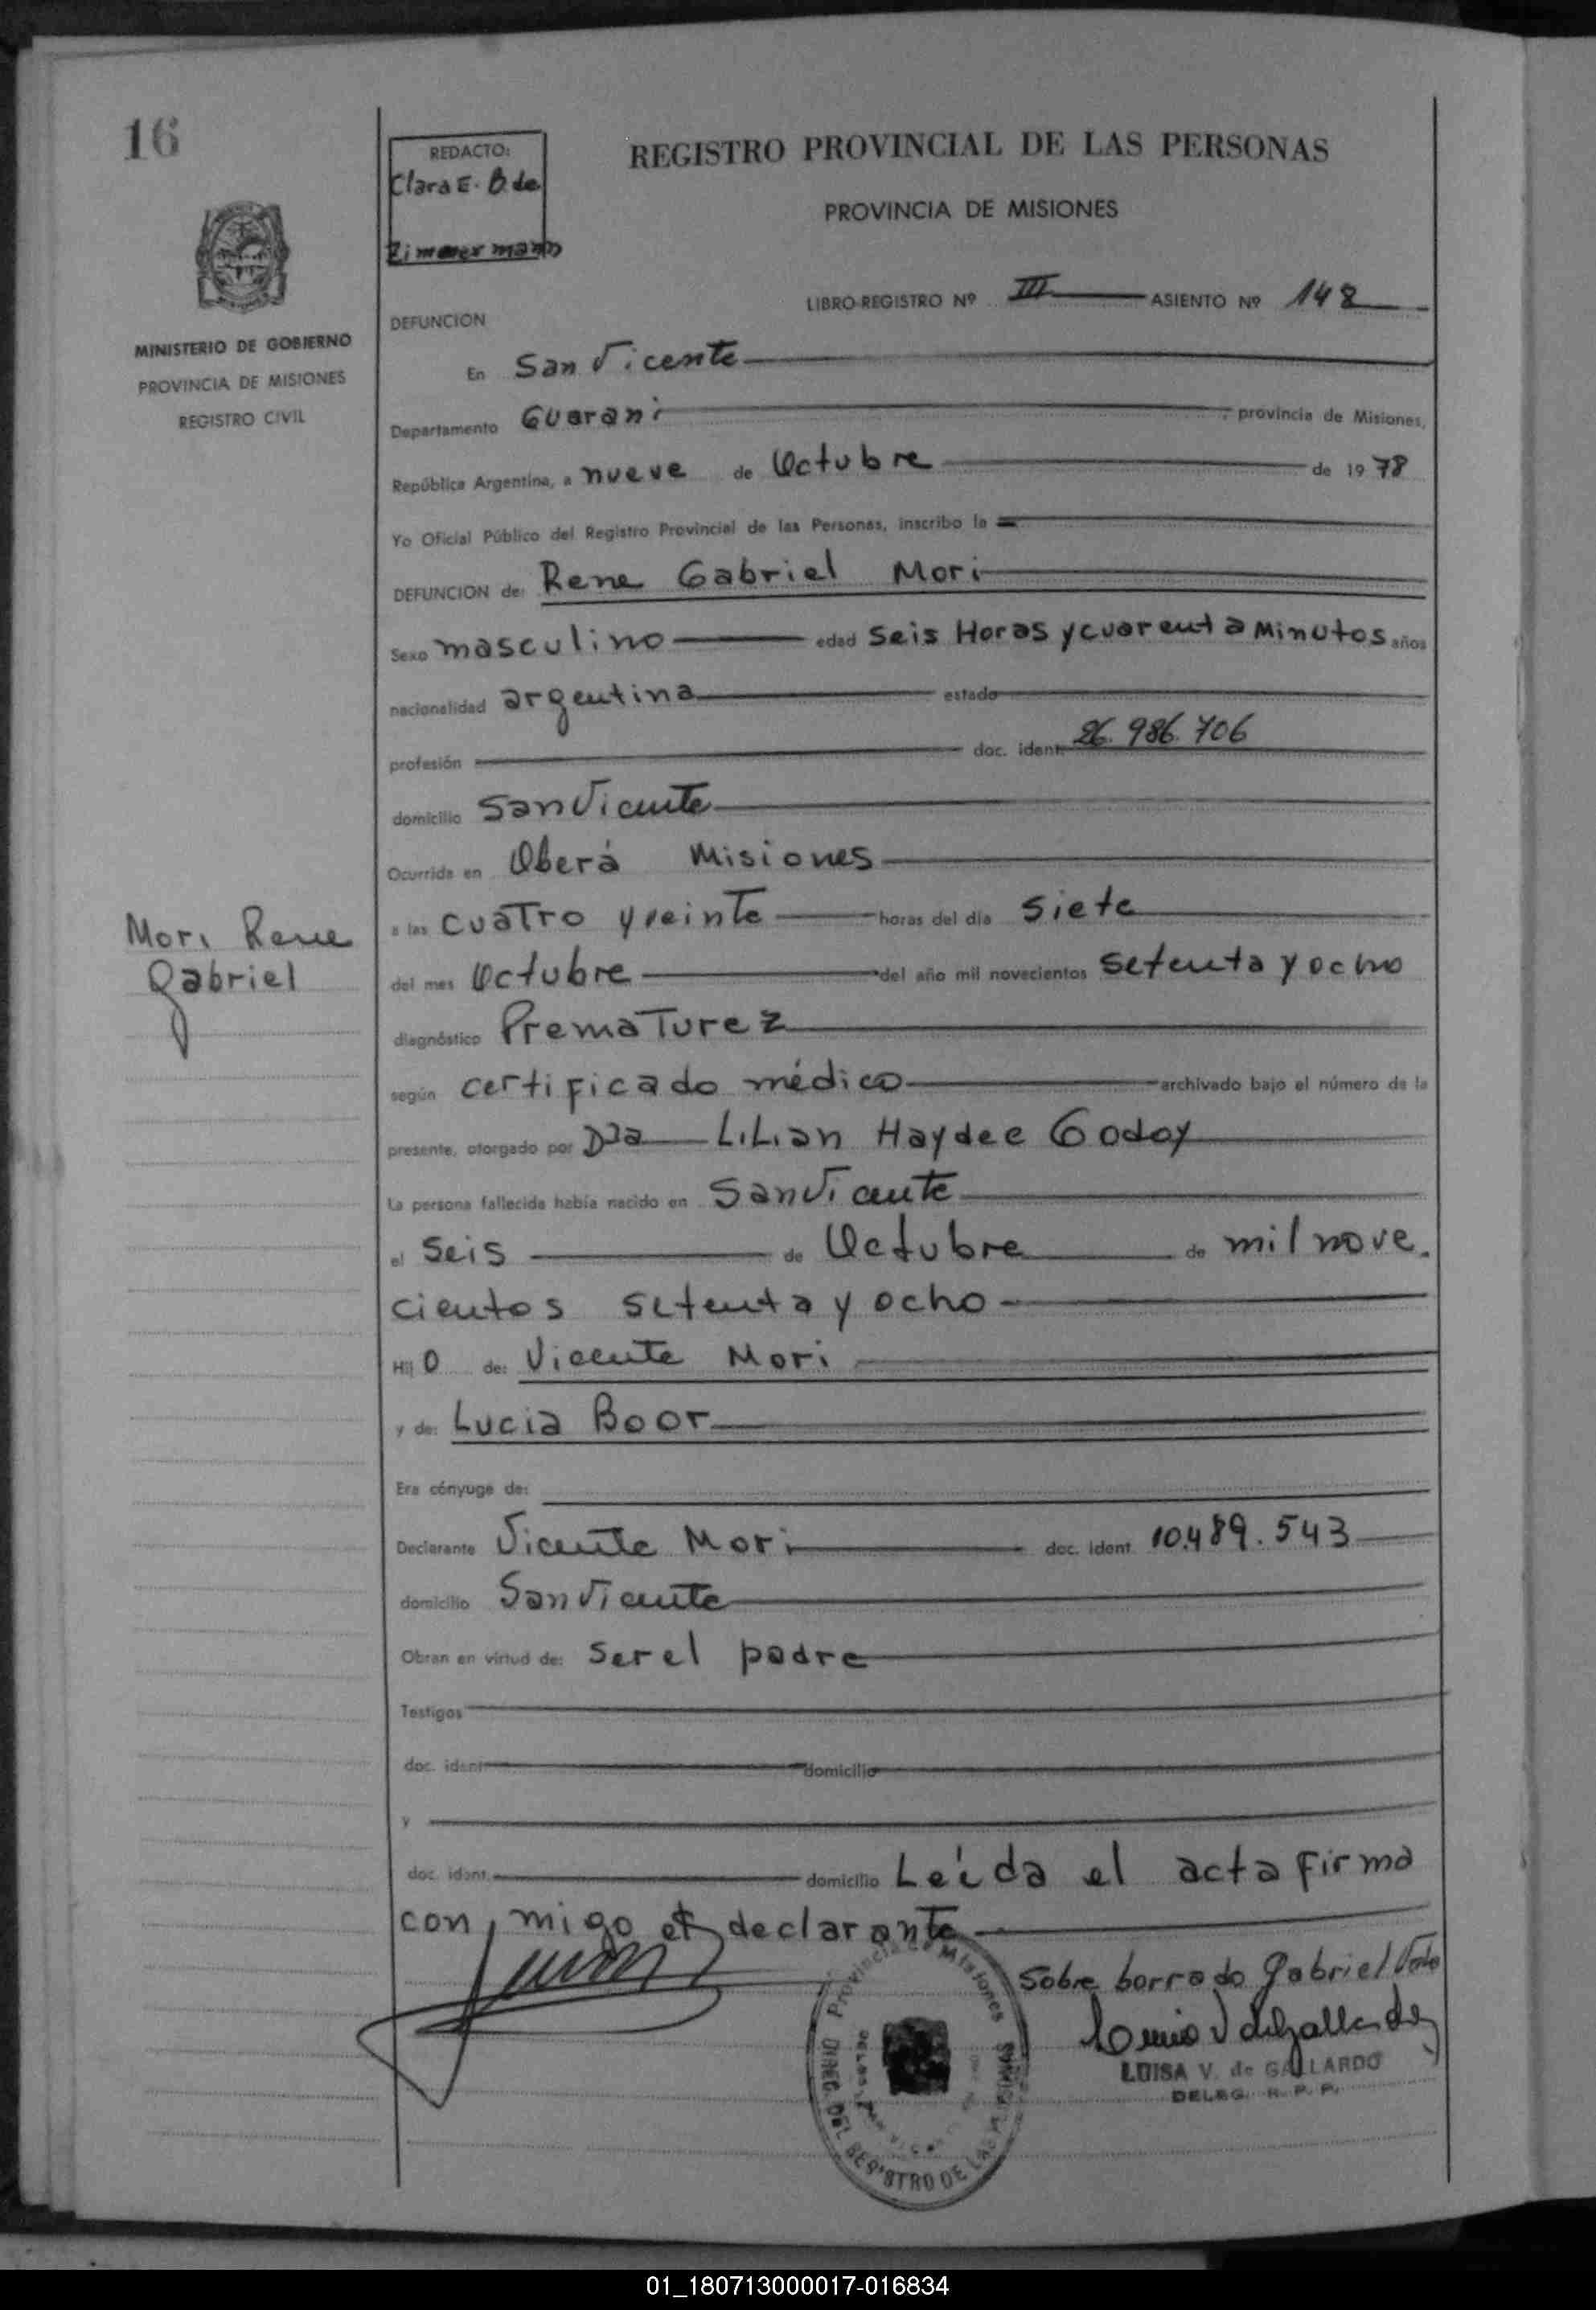 16
REDACTO:
Clara E. B. de
Zimmermann
REGISTRO PROVINCIAL DE LAS PERSONAS
PROVINCIA DE MISIONES
LIBRO-REGISTRO Nº III ASIENTO Nº 148
MINISTERIO DE GOBIERNO
PROVINCIA DE MISIONES
REGISTRO CIVIL
DEFUNCION
En San Vicente
Departamento Guarani, provincia de Misiones,
República Argentina, a nueve de Octubre de 1978
Yo Oficial Público del Registro Provincial de las Personas, inscribo la
DEFUNCION de: Rene Gabriel Mori
Sexo masculino edad Seis Horas y cuarenta Minutos años
nacionalidad argentina estado
profesión doc. ident. 26.986.706
domicilio San Vicente
Ocurrida en Oberá Misiones
a las cuatro y veinte horas del día siete
del mes Octubre del año mil novecientos setenta y ocho
Mori Rene
Gabriel
diagnóstico Prematurez
según certificado médico archivado bajo el número de la
presente, otorgado por Dra Lilian Haydee Godoy
La persona fallecida había nacido en San Vicente
el Seis de Octubre de mil nove.
cientos setenta y ocho
Hijo de: Vicente Mori
y de: Lucia Boor
Era cónyuge de:
Declarante Vicente Mori doc. ident. 10.489.543
domicilio San Vicente
Obran en virtud de: Ser el padre
Testigos
doc. ident. domicilio
y
doc. ident. domicilio Leída el acta firma
con migo el declarante
Sobre borrado Gabriel Vale
Provincia de Misiones
DIREC. DEL REGISTRO DE LAS
LUISA V. de GALLARDO
DELEG. R. P. P.
01_180713000017-016834